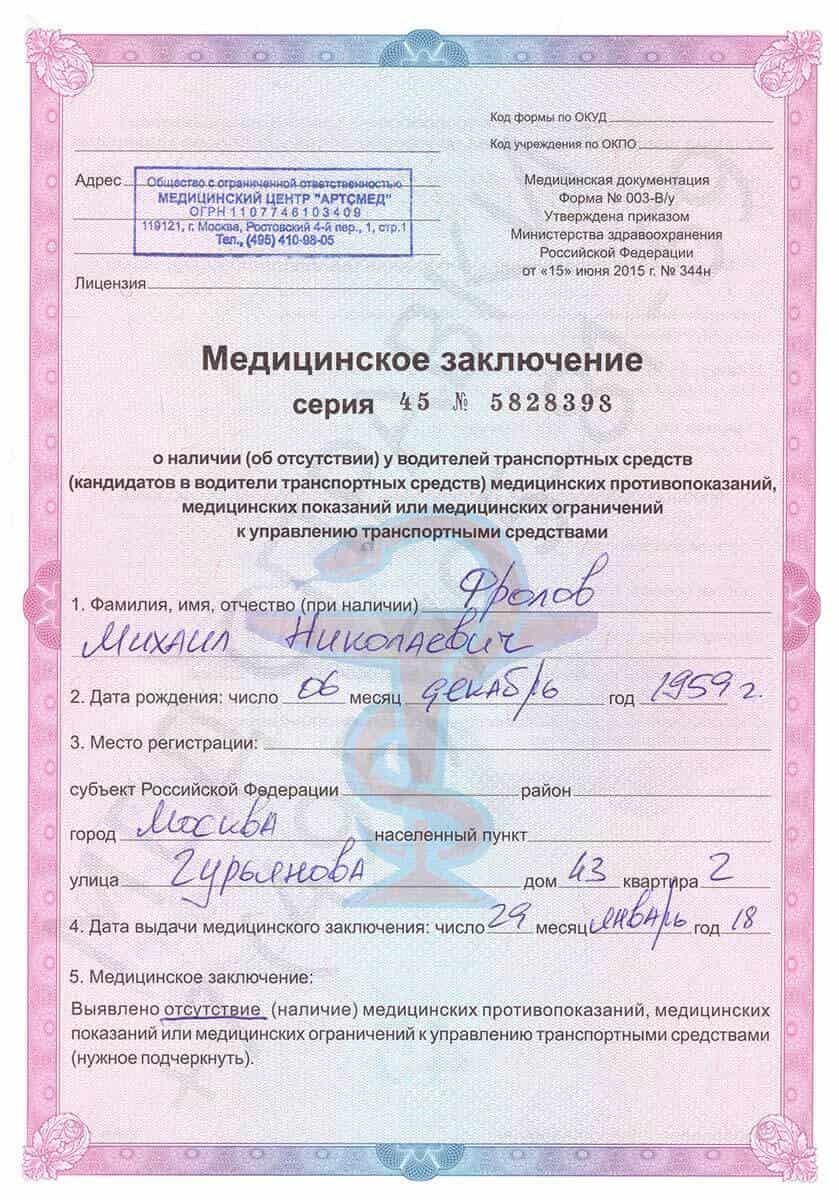 Код формы по ОКУД
Код учреждения по ОКПО
Адрес
Общество с ограниченной ответственностью
МЕДИЦИНСКИЙ ЦЕНТР "АРТСМЕД"
ОГРН 1107746103409
119121, г. Москва, Ростовский 4-й пер., 1, стр.1
Тел., (495) 410-98-05
Медицинская документация
Форма № 003-В/у
Утверждена приказом
Министерства здравоохранения
Российской Федерации
от «15» июня 2015 г. № 344н
Лицензия
Медицинское заключение
серия 45 № 5828398
о наличии (об отсутствии) у водителей транспортных средств
(кандидатов в водители транспортных средств) медицинских противопоказаний,
медицинских показаний или медицинских ограничений
к управлению транспортными средствами
1. Фамилия, имя, отчество (при наличии) Фролов
Михаил Николаевич
2. Дата рождения: число 06 месяц декабрь год 1959 г.
3. Место регистрации:
субъект Российской Федерации район
город Москва населенный пункт
улица Гурьянова дом 43 квартира 2
4. Дата выдачи медицинского заключения: число 29 месяц январь год 18
5. Медицинское заключение:
Выявлено отсутствие (наличие) медицинских противопоказаний, медицинских
показаний или медицинских ограничений к управлению транспортными средствами
(нужное подчеркнуть).